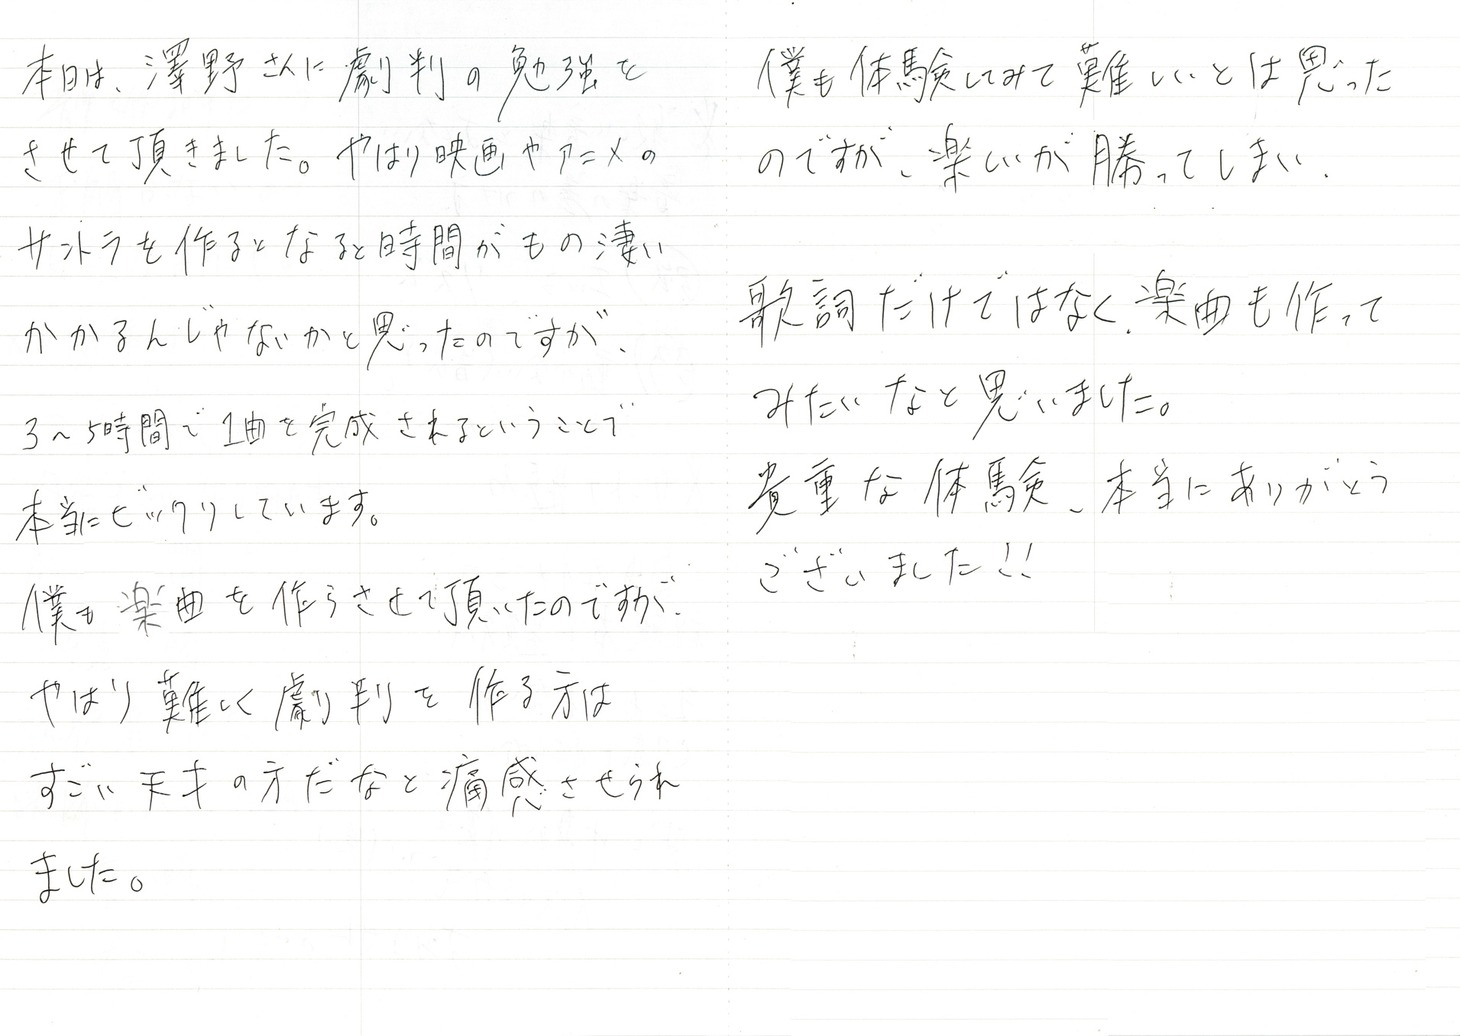 本日は、澤野さんに劇判の勉強を
させて頂きました。やはり映画やアニメの
サントラを作るとなると時間がもの凄い
かかるんじゃないかと思ったのですが、
3〜5時間で1曲を完成されるということで
本当にビックリしています。
僕も楽曲を作らさせて頂いたのですが、
やはり難しく劇判を作る方は
すごい天才の方だなと痛感させられ
ました。
僕も体験してみて難しいとは思った
のですが、楽しいが勝ってしまい、
歌詞だけではなく、楽曲も作って
みたいなと思いました。
貴重な体験、本当にありがとう
ございました!!